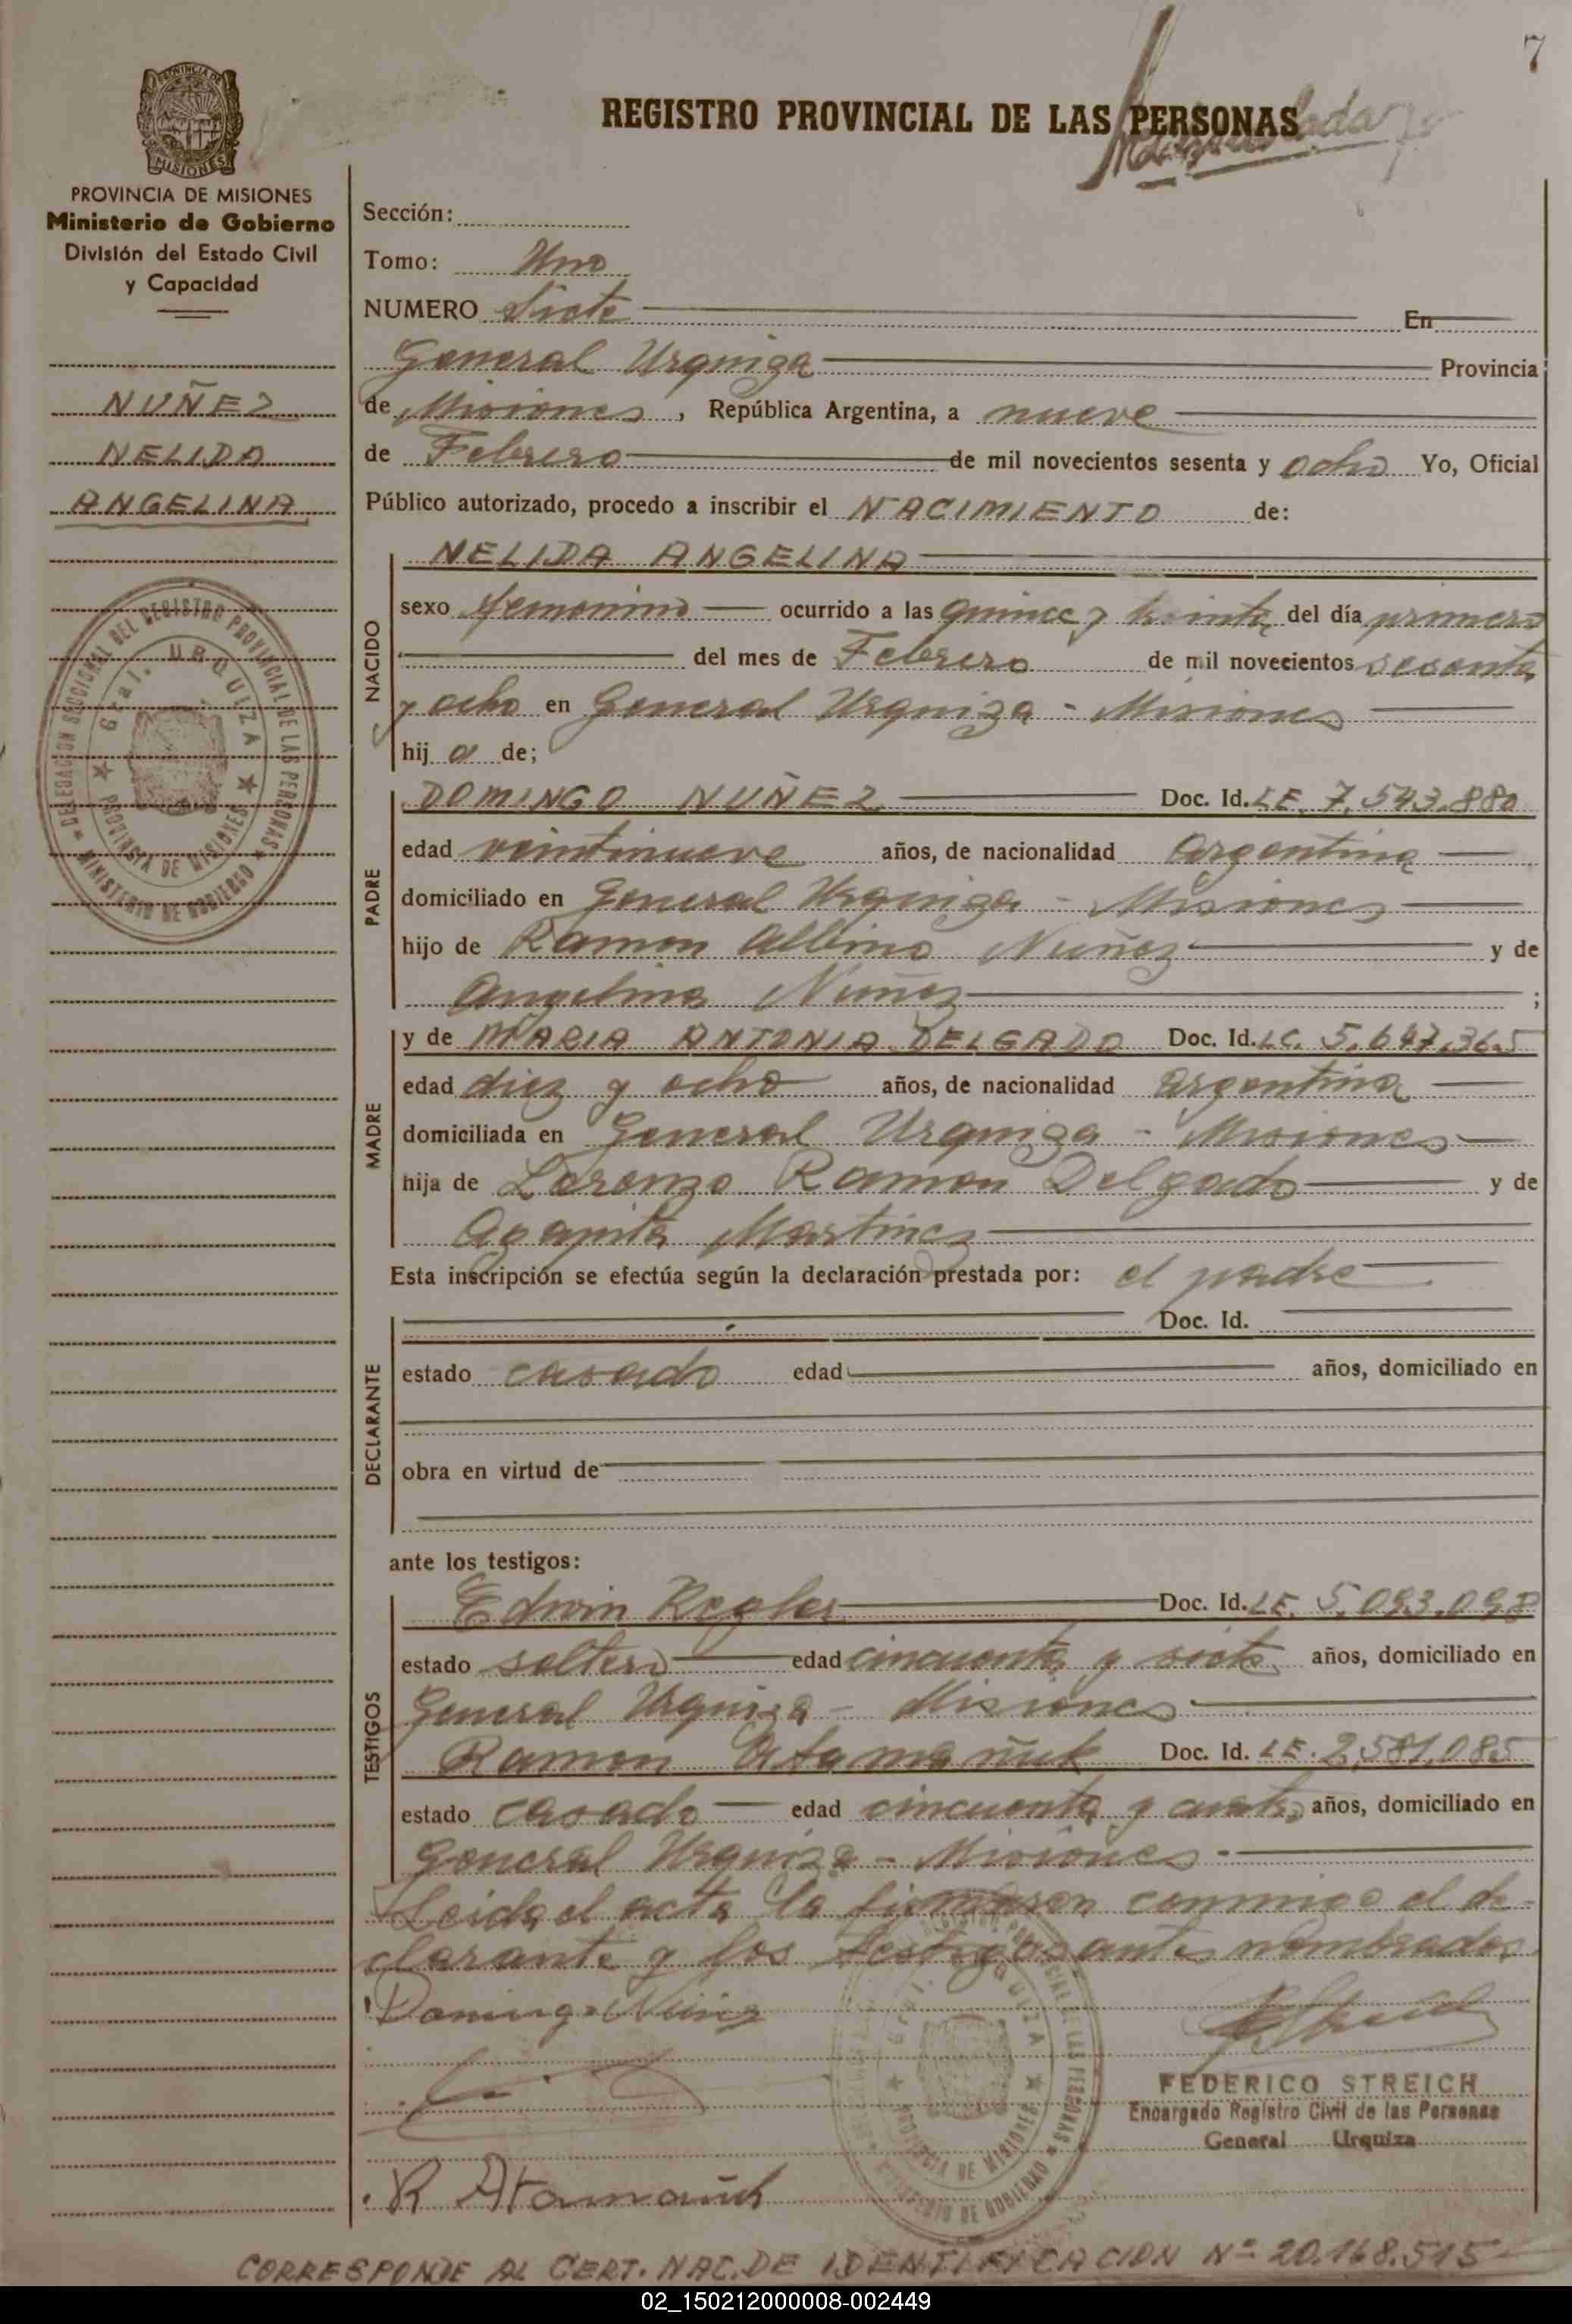 7
REGISTRO PROVINCIAL DE LAS PERSONAS
PROVINCIA DE MISIONES
PROVINCIA DE MISIONES
Ministerio de Gobierno
División del Estado Civil
y Capacidad
NUÑEZ
NELIDA
ANGELINA
DELEGACION SECCIONAL DEL REGISTRO PROVINCIAL DE LAS PERSONAS
Gral. URQUIZA
PROVINCIA DE MISIONES
MINISTERIO DE GOBIERNO
Sección:
Tomo: Uno
NUMERO Siete En
General Urquiza Provincia
de Misiones, República Argentina, a nueve
de Febrero de mil novecientos sesenta y ocho Yo, Oficial
Público autorizado, procedo a inscribir el NACIMIENTO de:
NACIDO
NELIDA ANGELINA
sexo femenino ocurrido a las quince y treinta del día primero
del mes de Febrero de mil novecientos sesenta
y ocho en General Urquiza - Misiones
hij a de;
PADRE
DOMINGO NUÑEZ Doc. Id. LE. 7.543.880
edad veintinueve años, de nacionalidad Argentina
domiciliado en General Urquiza - Misiones
hijo de Ramon Albino Nuñez y de
Angelina Nuñez ;
MADRE
y de MARIA ANTONIA DELGADO Doc. Id. LC. 5.647.365
edad diez y ocho años, de nacionalidad argentina
domiciliada en General Urquiza - Misiones
hija de Lorenzo Ramon Delgado y de
Agapita Martinez
Esta inscripción se efectúa según la declaración prestada por: el padre
DECLARANTE
Doc. Id.
estado casado edad años, domiciliado en
obra en virtud de
ante los testigos:
TESTIGOS
Edwin Regler Doc. Id. LE. 5.093.098
estado soltero edad cincuenta y siete años, domiciliado en
General Urquiza - Misiones
Ramon Atamañuk Doc. Id. LE. 2.581.085
estado casado edad cincuenta y años, domiciliado en
General Urquiza - Misiones
Leida el acta la firmaron conmigo el de-
clarante y los testigos antes nombrados
Domingo Nuñez
FEDERICO STREICH
Encargado Registro Civil de las Personas
General Urquiza
R Atamañuk
CORRESPONDE AL CERT. NAC. DE IDENTIFICACION Nº 20.168.515
02_150212000008-002449